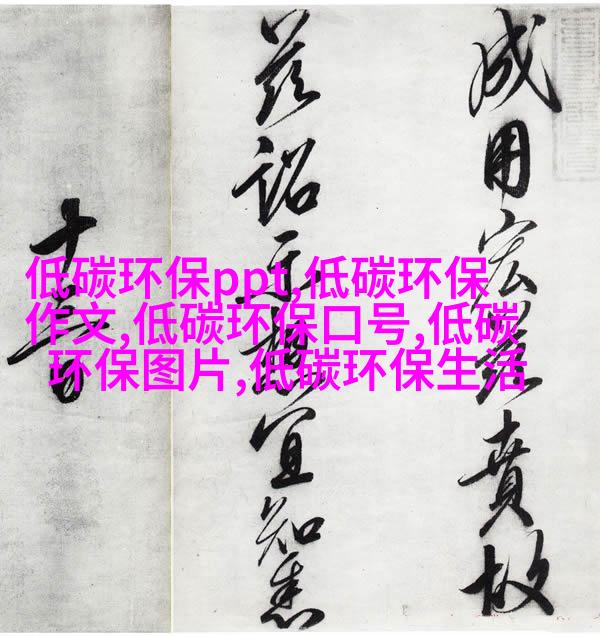 成用宏茲賁故
茲詔示想宜知悉
十
低碳环保ppt,低碳环保
作文,低碳环保口号,低碳
环保图片,低碳环保生活